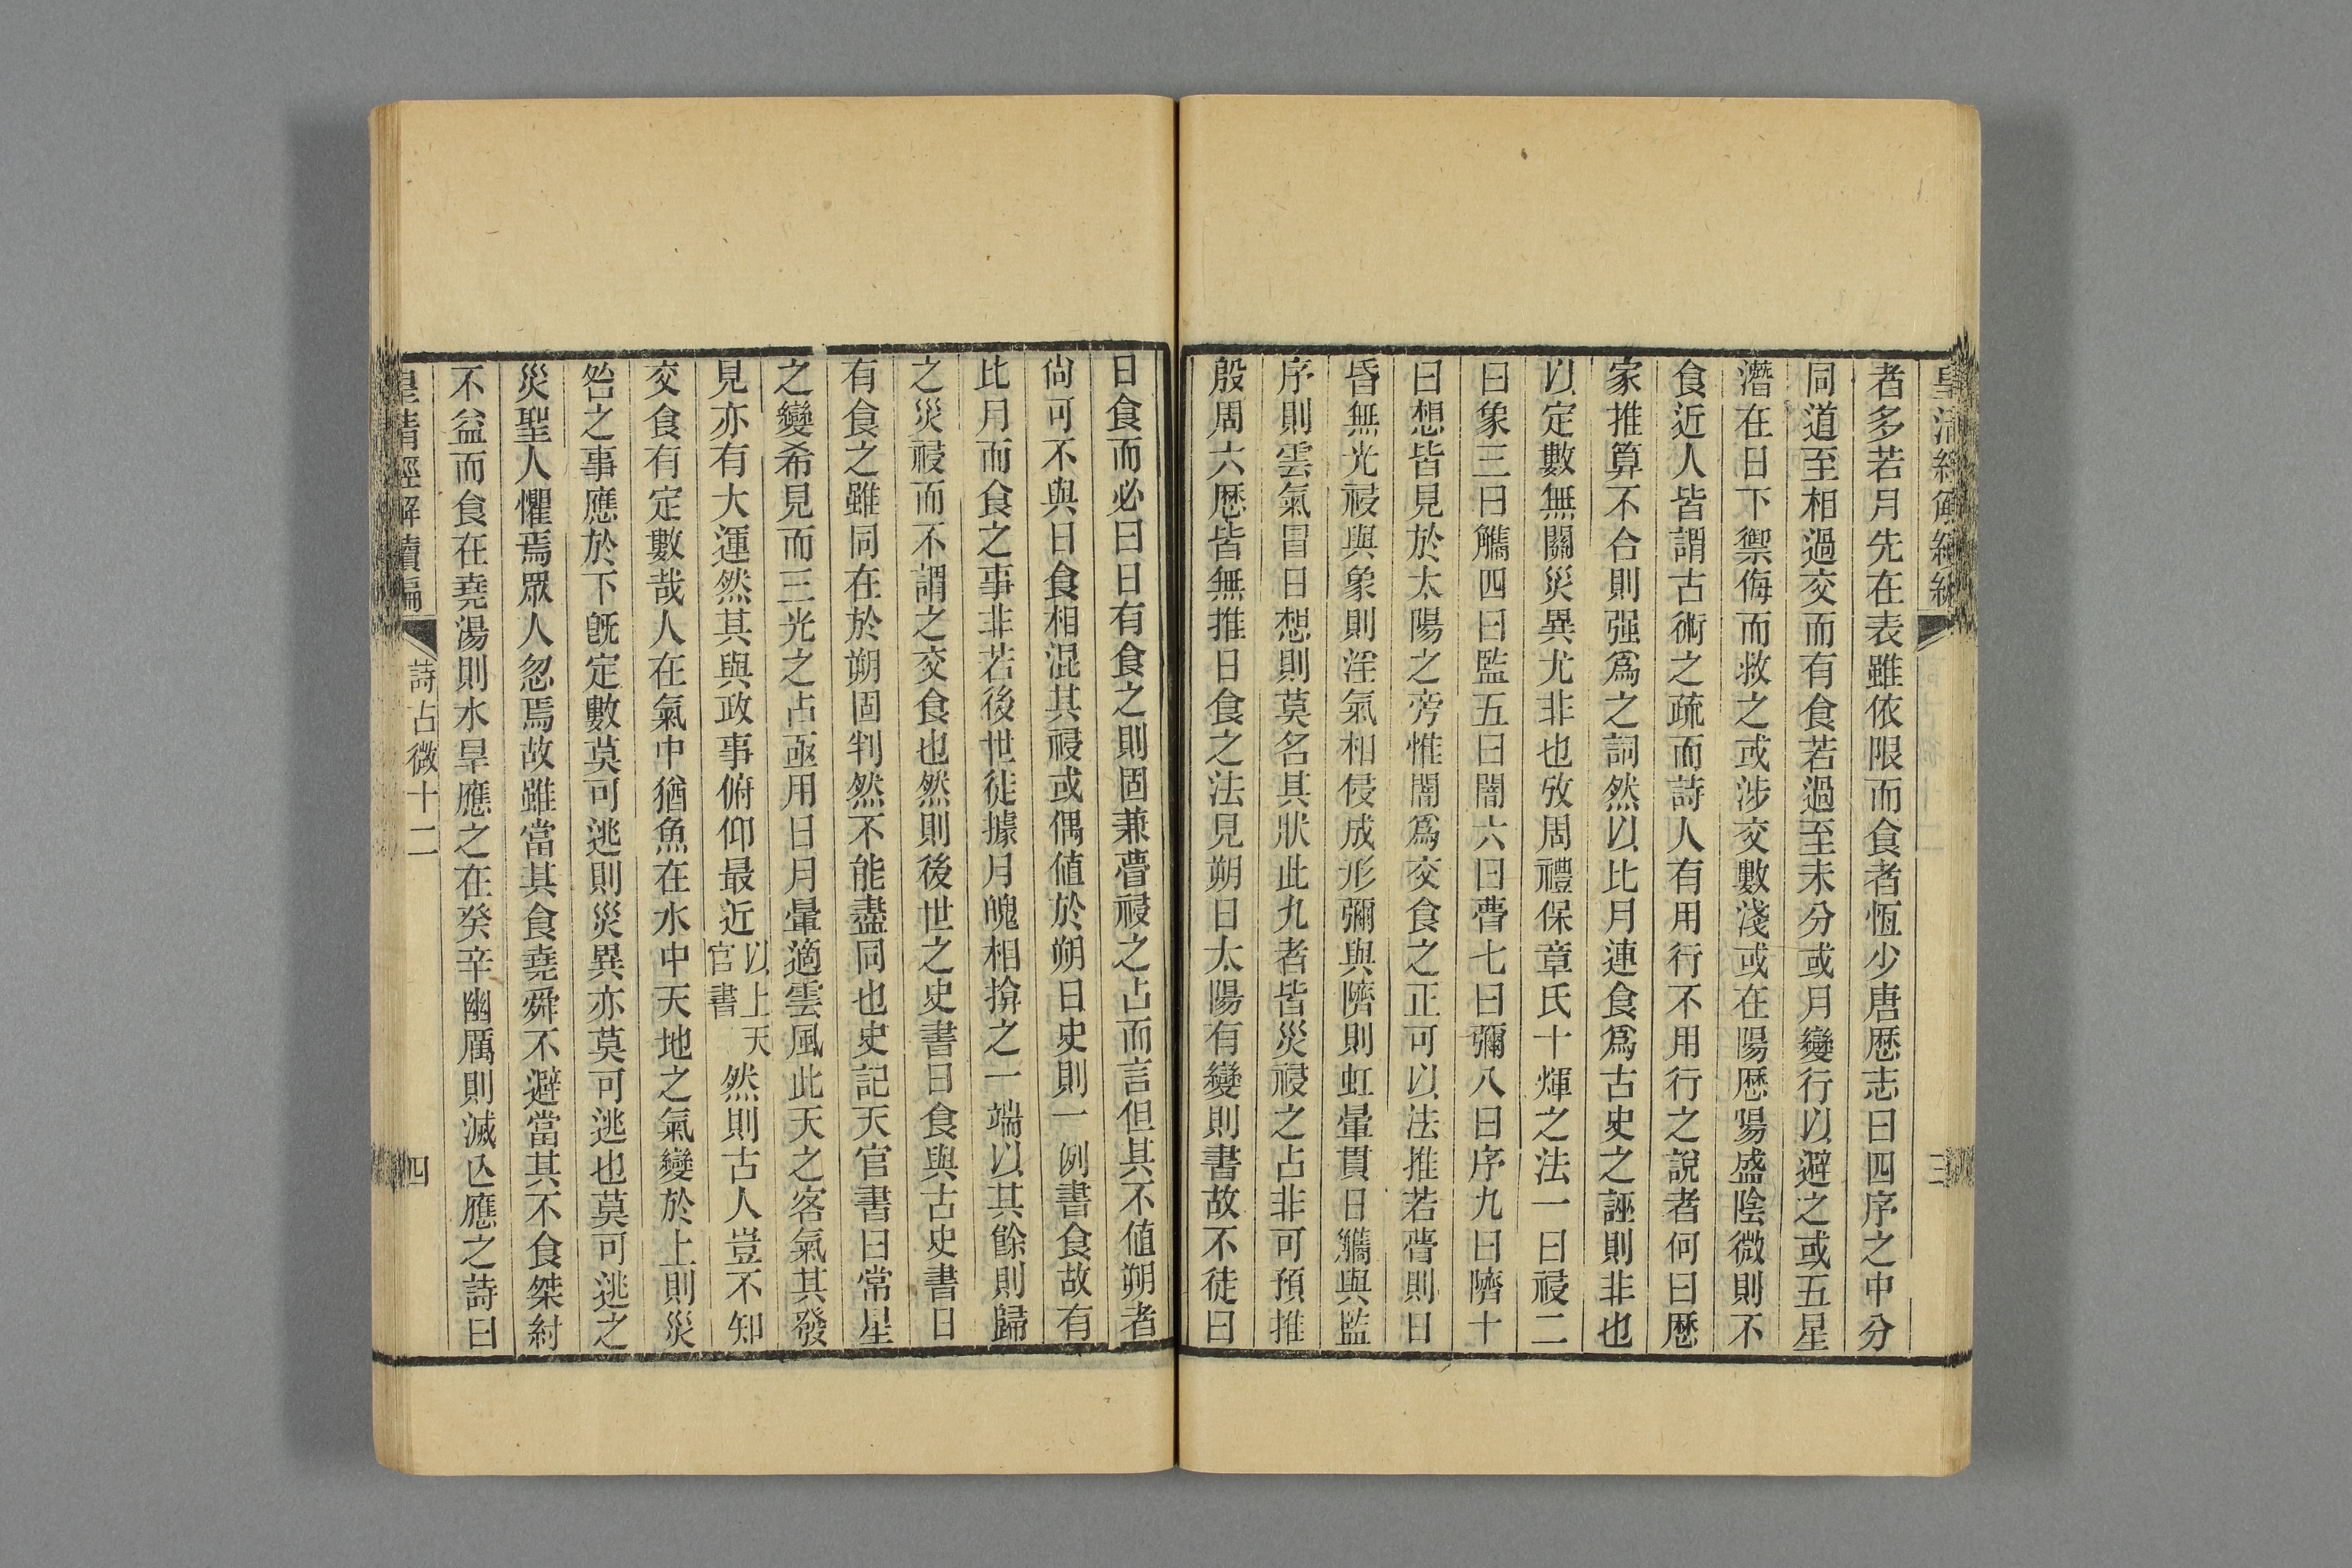 者多若月先在表雖依限而食者恆少唐歷志曰四序之中分
同道至相過交而有食若過至未分或月變行以避之或五星
潛在日下禦侮而救之或涉交數淺或在陽歷陽盛陰微則不
食近人皆謂古術之疏而詩人有用行不用行之說者何曰歷
家推算不合則强爲之詞然以比月連食爲古史之誣則非也
以定數無關災異尤非也攷周禮保章氏十煇之法一曰祲二
曰象三曰觿四曰監五曰闇六曰瞢七曰彌八曰序九曰隮十
曰想皆見於太陽之旁惟闇爲交食之正可以法推若瞢則日
昏無光祲與象則淫氣相侵成形彌與隮則虹暈貫日觿與監
序則雲氣冒日想則莫名其狀此九者皆災祲之占非可預推
殷周六歷皆無推日食之法見朔日太陽有變則書故不徒曰
日食而必曰日有食之則固兼瞢祲之占而言但其不値朔者
尙可不與日食相混其祲或偶値於朔日史則一例書食故有
比月而食之事非若後世徒據月魄相揜之一端以其餘則歸
之災祲而不謂之交食也然則後世之史書日食與古史書日
有食之雖同在於朔固判然不能盡同也史記天官書曰常星
之變希見而三光之占亟用日月暈適雲風此天之客氣其發
見亦有大運然其與政事俯仰最近以上天官書然則古人豈不知
交食有定數哉人在氣中猶魚在水中天地之氣變於上則災
咎之事應於下旣定數莫可逃則災異亦莫可逃也莫可逃之
災聖人懼焉眾人忽焉故雖當其食堯舜不避當其不食桀紂
不益而食在堯湯則水旱應之在癸辛幽厲則滅亾應之詩曰
皇淸經解續編
詩古微十二
四